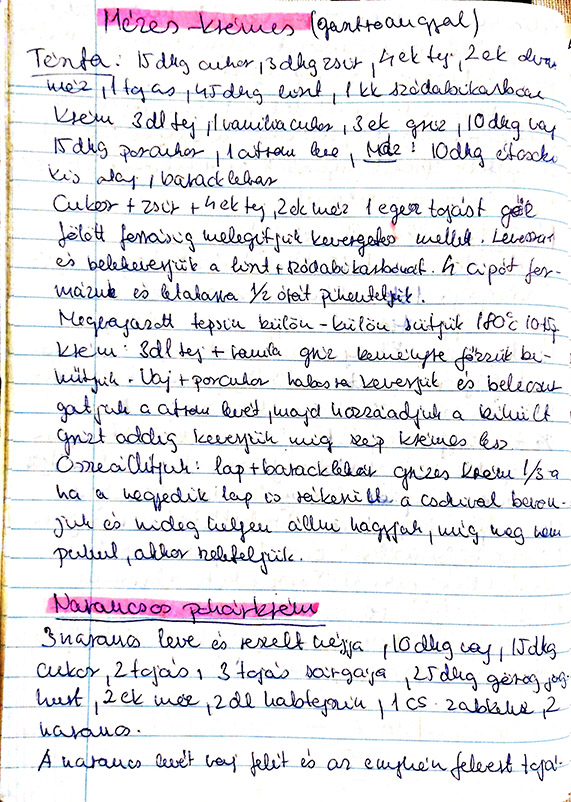 Mézes-krémes (gastroangyal)
Tészta: 15 dkg cukor, 3 dkg zsír, 4 ek tej, 2 ek olva
méz, 1 tojás, 45 dkg liszt, 1 kk szódabikarbóna
Krém 3 dl tej, 1 vanília cukor, 3 ek gríz, 10 dkg vaj
15 dkg porcukor, 1 citrom leve, Máz: 10 dkg étcsoki
kis olaj, baracklekvár
Cukor + zsír + 4 ek tej, 2 ek méz 1 egész tojást gőz
fölött forrásig melegítjük kevergetés mellett. Levesszük
és belekeverjük a liszt + szódabikarbónát. 4 cipót for-
mázunk és letakarva 1/2 órát pihentetjük.
Megvajazott tepsin külön-külön sütjük 180°C 10-15p
Krém: 3 dl tej + vanilia gríz keményre főzzük ki-
hűtjük. Vaj + porcukor habosra keverjük és belecsur
gatjuk a citrom levét, majd hozzáadjuk a kihűlt
grízt addig keverjük míg szép krémes lesz
Összeállítjuk: lap + baracklekvár grízes krém 1/3-a
ha a negyedik lap is rákerült a csokival bevon-
juk és hideg helyen állni hagyjuk, míg meg nem
puhul, akkor szeleteljük.
Narancsos pohárkrém
3 narancs leve és reszelt héjja, 10 dkg vaj, 15 dkg
cukor, 2 tojás, 3 tojás sárgája, 25 dkg görög jog-
hurt, 2 ek méz, 2 dl habtejszín, 1 cs. zabkeksz, 2
narancs.
A narancs levét vaj felét és az enyhén felvert tojá-